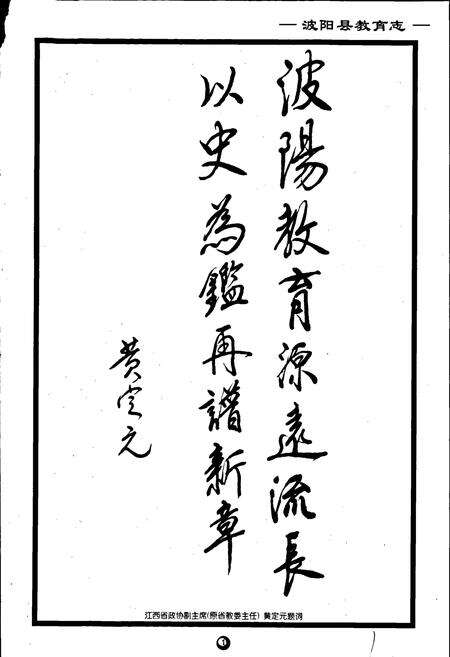 波阳县教育志
波陽教育源遠流長
以史為鑑再譜新章
黄定元
江西省政协副主席(原省教委主任) 黄定元题词